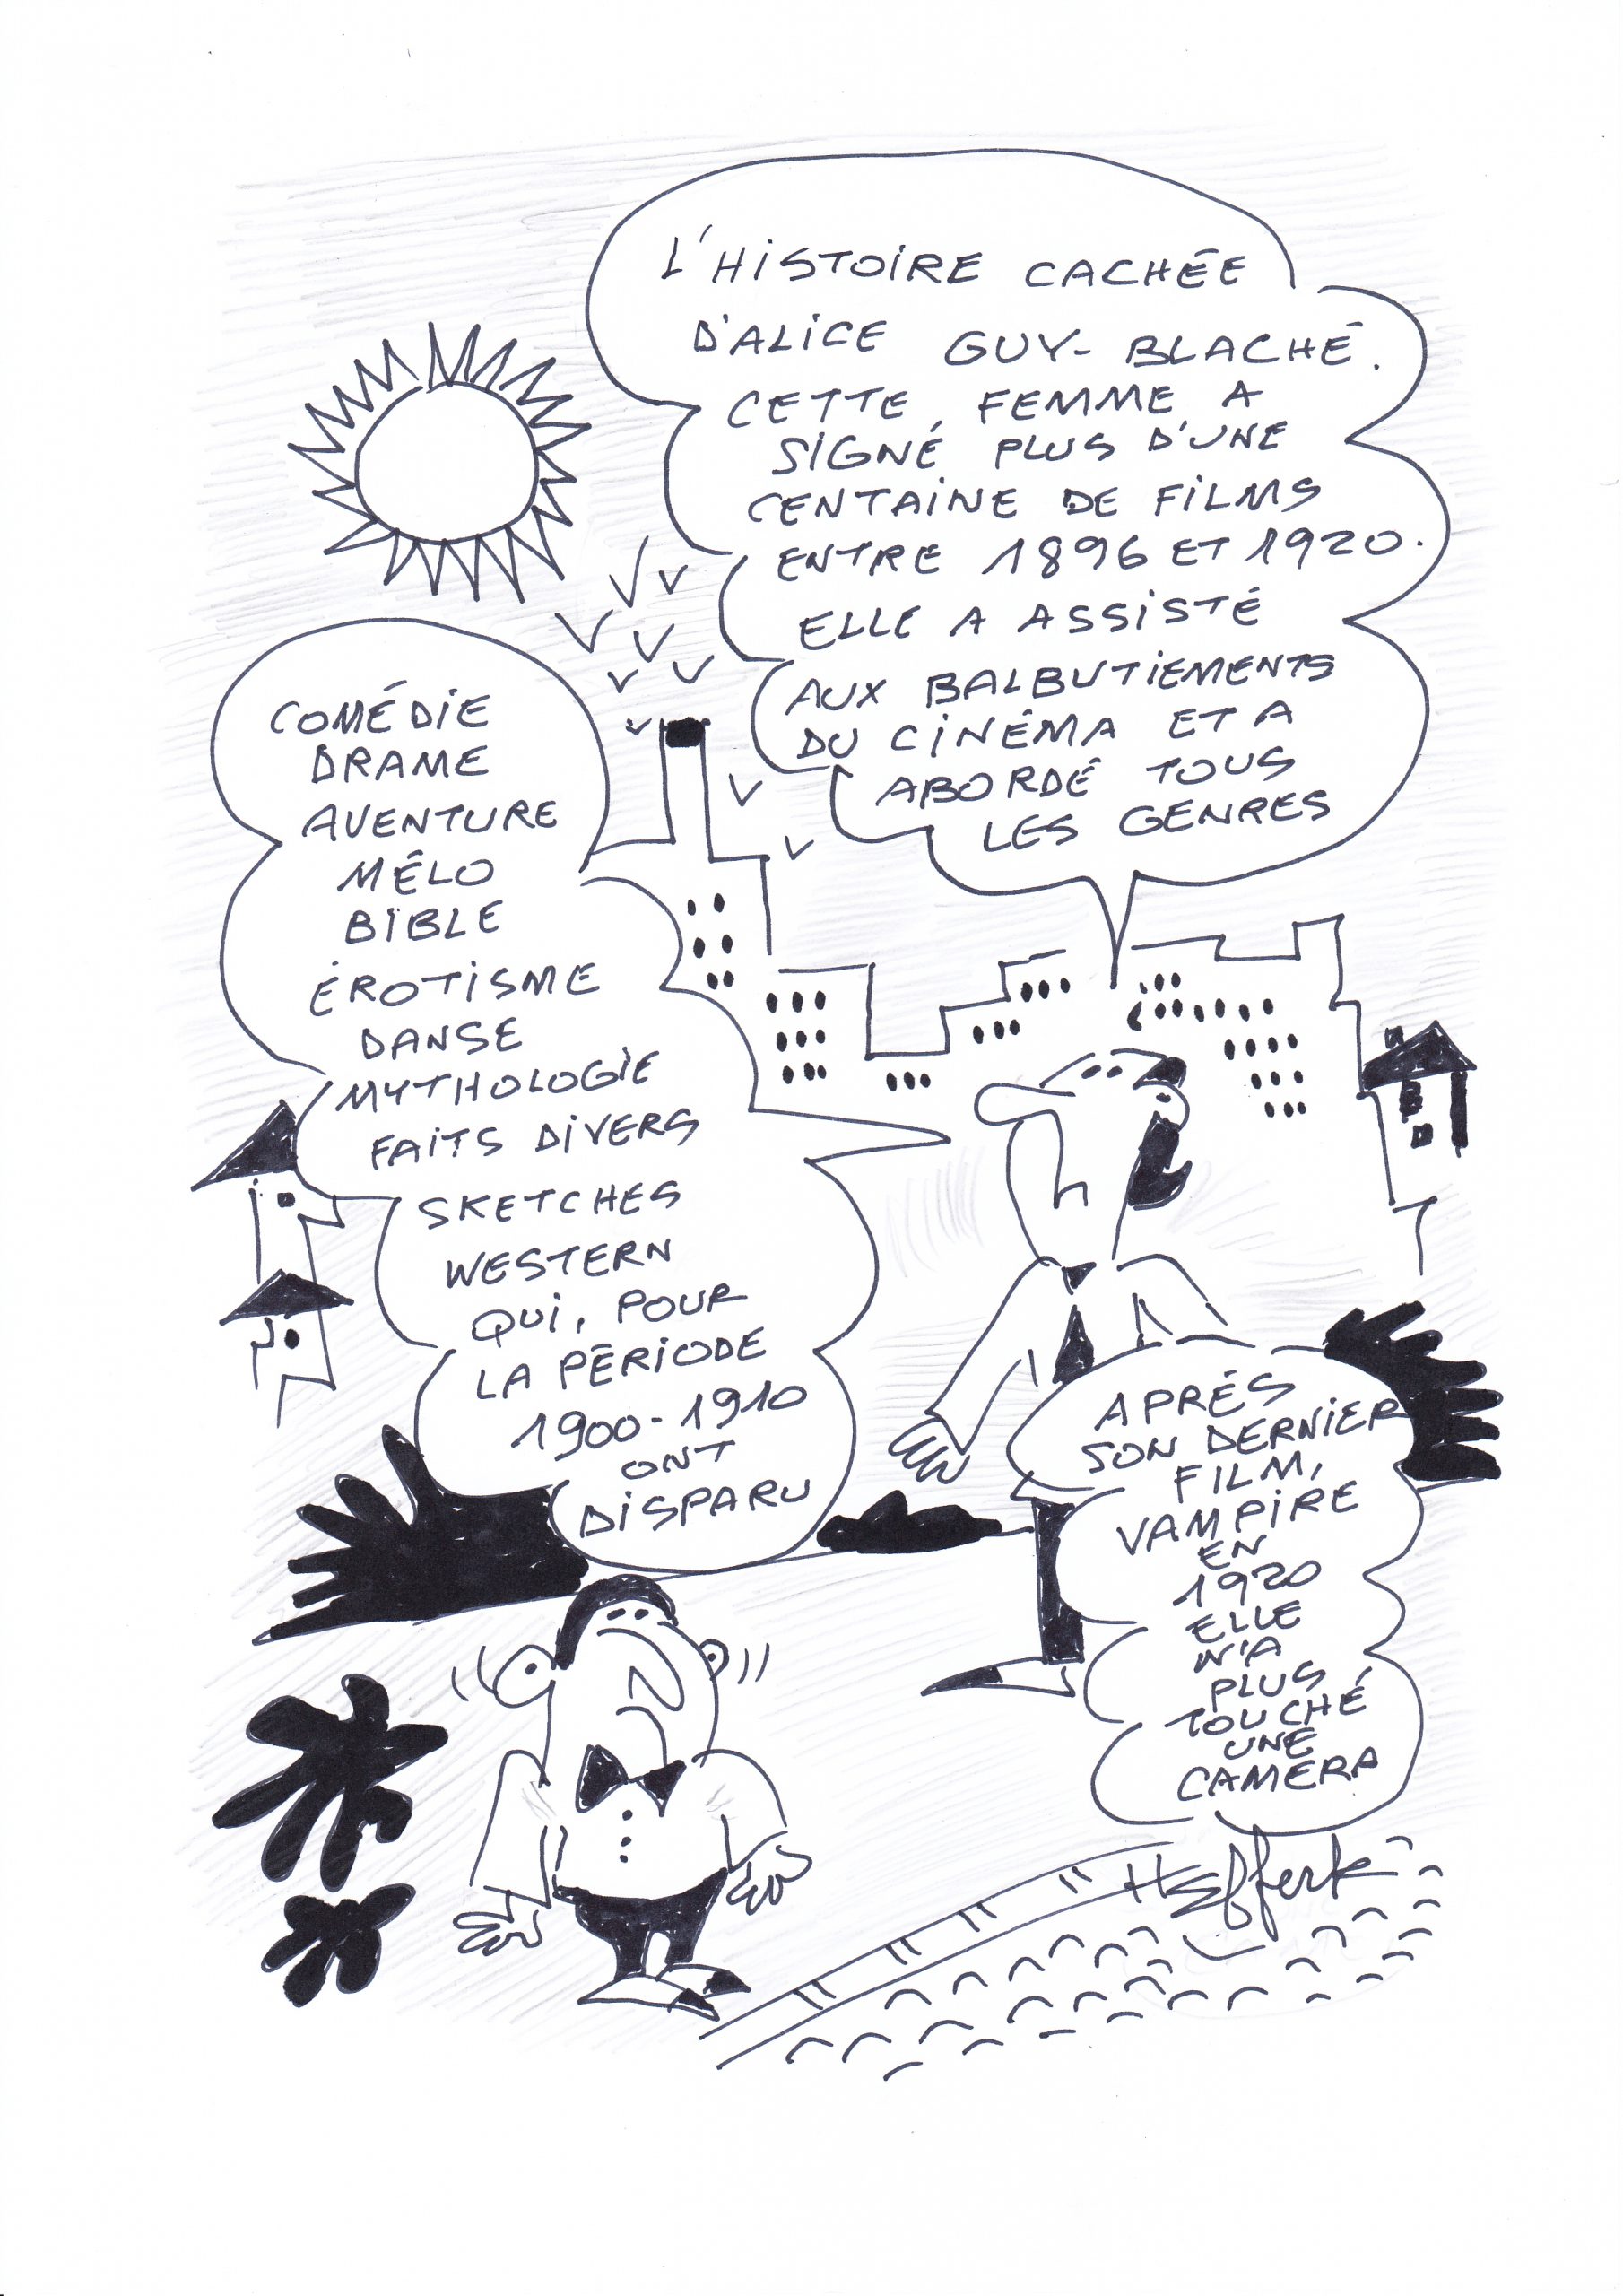 L'HISTOIRE CACHÉE
D'ALICE GUY-BLACHÉ.
CETTE FEMME A
SIGNÉ PLUS D'UNE
CENTAINE DE FILMS
ENTRE 1896 ET 1920.
ELLE A ASSISTÉ
AUX BALBUTIEMENTS
DU CINÉMA ET A
ABORDÉ TOUS
LES GENRES
COMÉDIE
DRAME
AVENTURE
MÉLO
BIBLE
ÉROTISME
DANSE
MYTHOLOGIE
FAITS DIVERS
SKETCHES
WESTERN
QUI, POUR
LA PÉRIODE
1900-1910
ONT
DISPARU
APRÉS
SON DERNIER
FILM,
VAMPIRE
EN
1920
ELLE
N'A
PLUS
TOUCHÉ
UNE
CAMERA